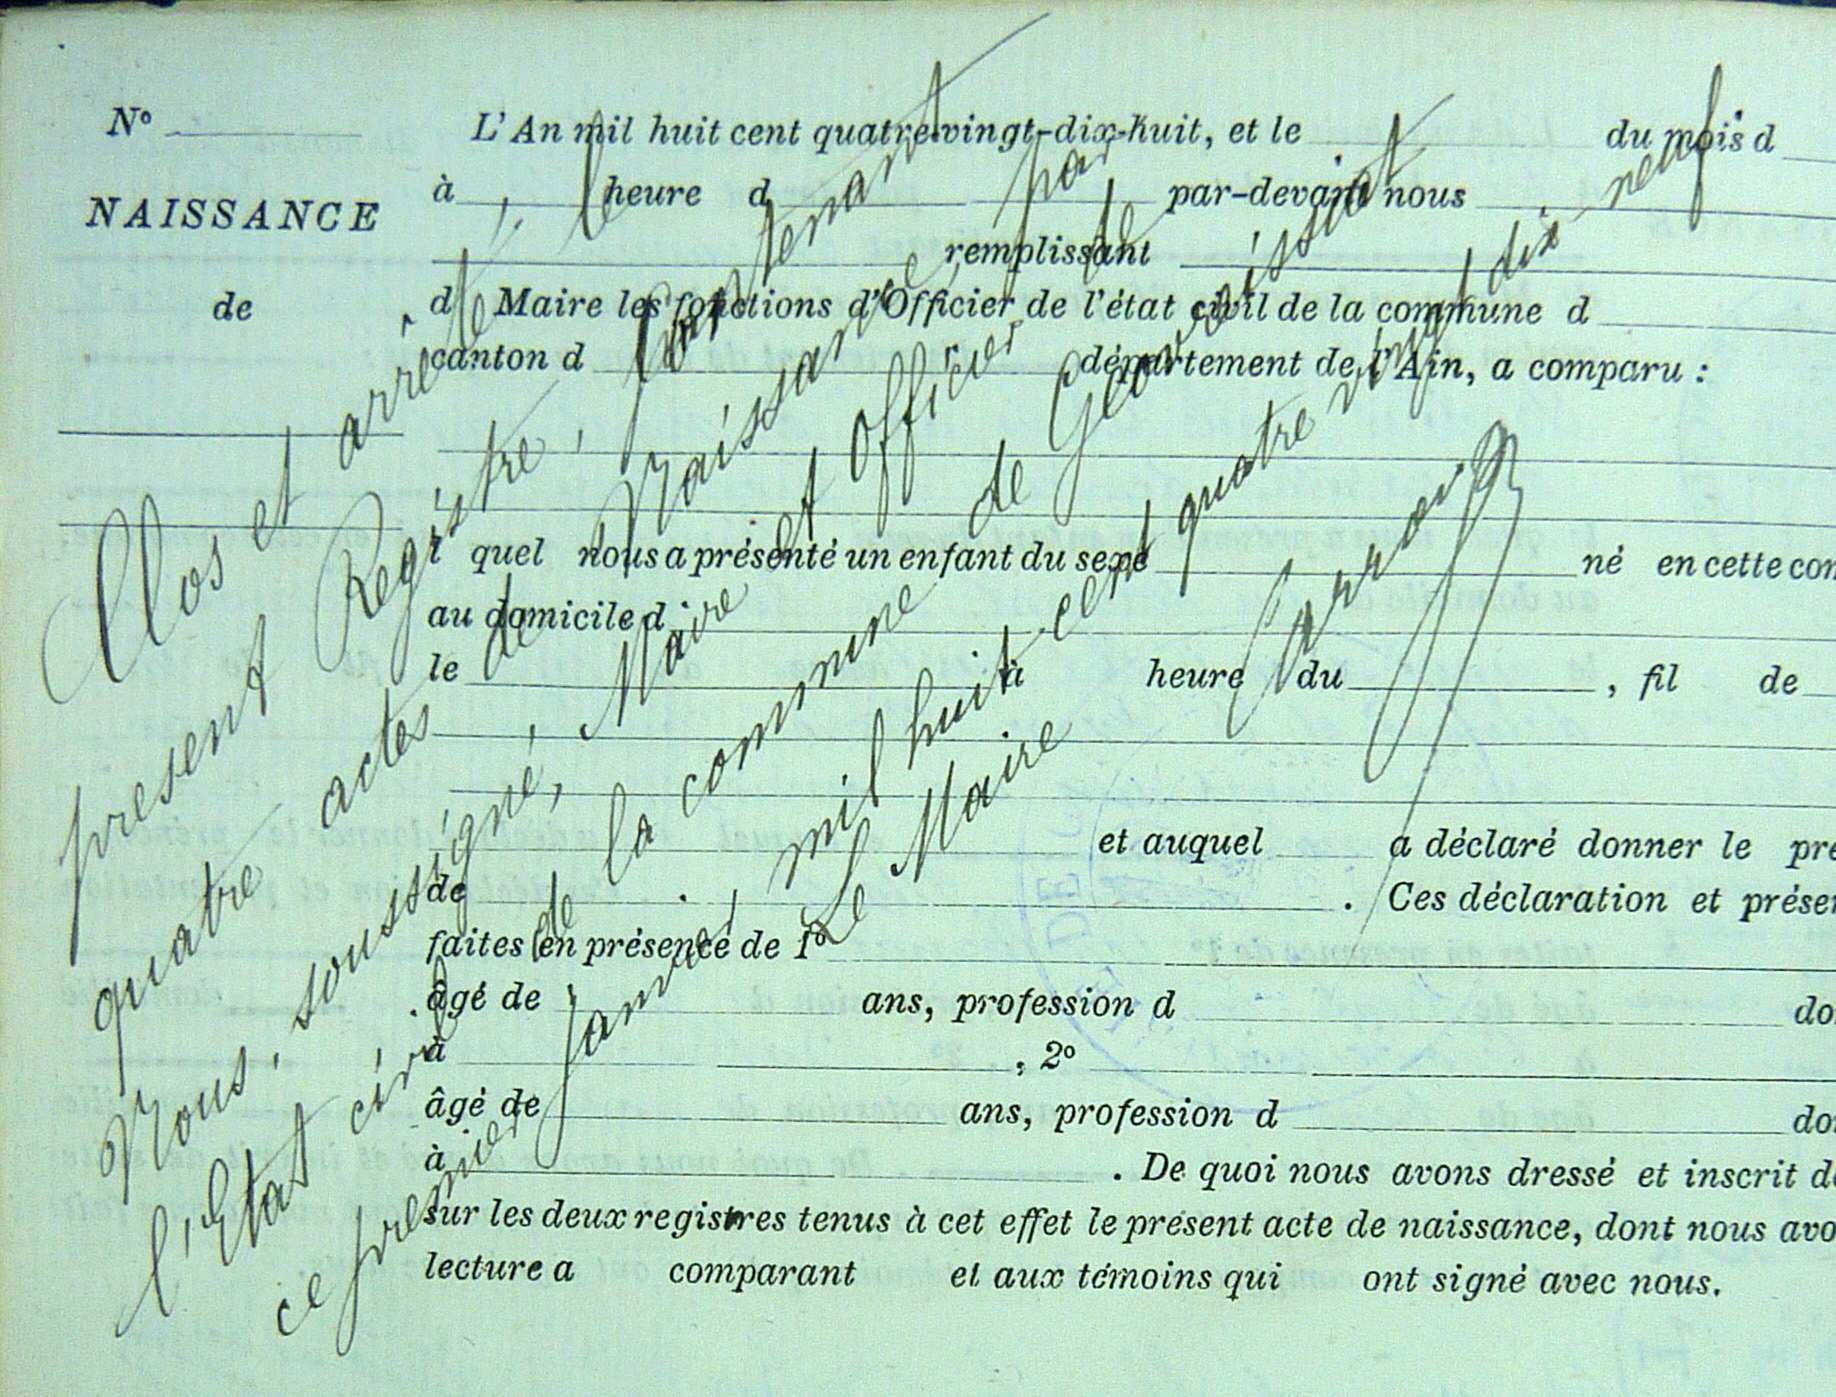 N° L'An mil huit cent quatre-vingt-dix-huit, et le du mois d
NAISSANCE
à heure d par-devant nous
remplissant
de
d Maire les fonctions d'Officier de l'état civil de la commune d
canton d département de l'Ain, a comparu :
l quel nous a présenté un enfant du sexe né en cette com
au domicile d
le à heure du , fil de
et auquel a déclaré donner le pré
de . Ces déclaration et présen
faites en présence de 1°
âgé de ans, profession d do
à , 2°
âgé de ans, profession d do
à . De quoi nous avons dressé et inscrit de
sur les deux registres tenus à cet effet le présent acte de naissance, dont nous avo
lecture a comparant et aux témoins qui ont signé avec nous.
Clos et arrêté, le
présent Registre, contenant
quatre actes de Naissance, par
Nous, soussigné, Maire et Officier de
l'Etat civil de la commune de Géovreissiat
ce premier janvier mil huit cent quatre vingt dix-neuf
Le Maire